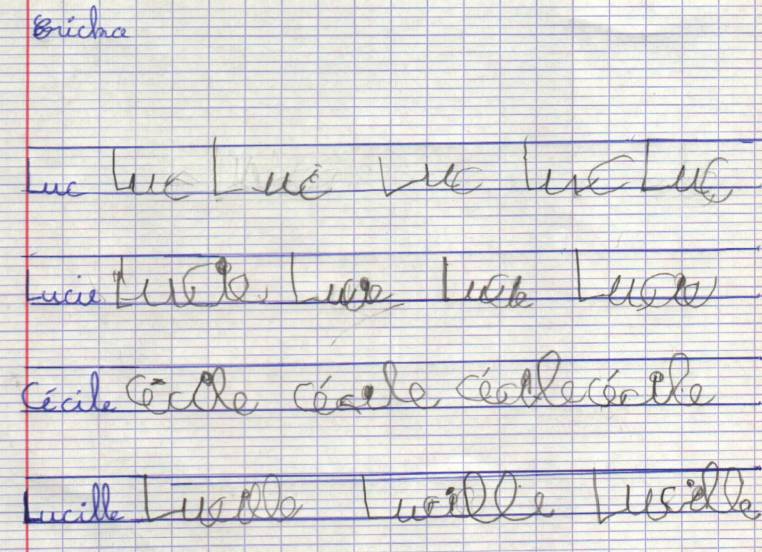 Luc Luc Luc Luc Luc Luc
Lucie Lucie Lucie Lucie Lucie
Cécile Cécile Cécile Cécile Cécile
Lucille Lucille Lucille Lucille